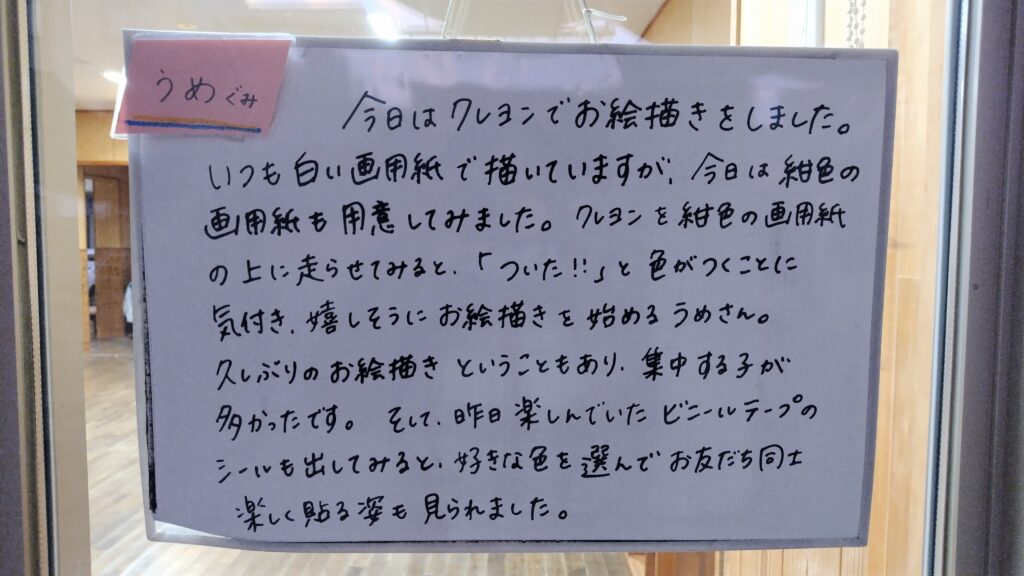 うめぐみ
今日はクレヨンでお絵描きをしました。
いつも白い画用紙で描いていますが、今日は紺色の
画用紙も用意してみました。クレヨンを紺色の画用紙
の上に走らせてみると、「ついた!!」と色がつくことに
気付き、嬉しそうにお絵描きを始めるうめさん。
久しぶりのお絵描きということもあり、集中する子が
多かったです。そして、昨日楽しんでいたビニールテープの
シールも出してみると、好きな色を選んでお友だち同士
楽しく貼る姿も見られました。